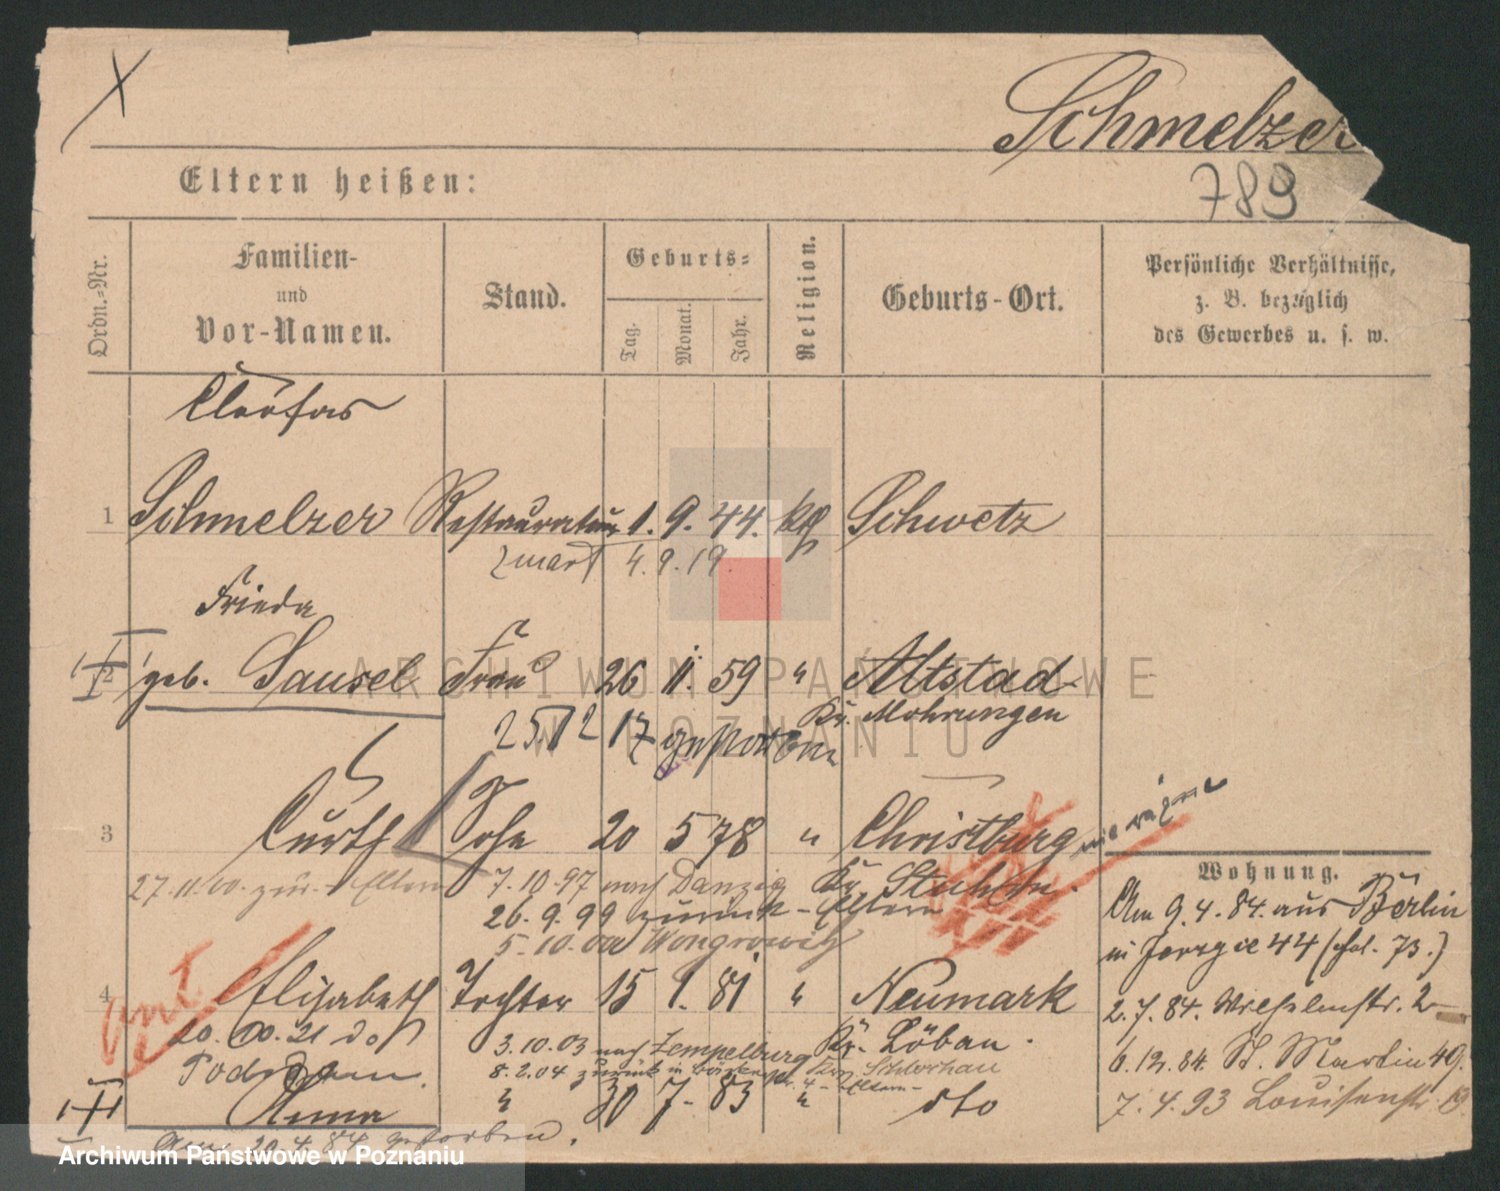 Schmelzer
789
Eltern heißen:
Ordn.-Nr.
Familien-
und
Vor-Namen.
Stand.
Geburts-
Tag.
Monat.
Jahr.
Religion.
Geburts-Ort.
Persönliche Verhältnisse,
z. B. bezüglich
des Gewerbes u. s. w.
Cleofas
1 Schmelzer Restaurateur 1. 9. 44. kg Schwetz
zmarł 4.9.19.
Frieda
2 geb. Sausel Frau 26 11. 59 " Altstadt
Kr. Mohrungen
25.12 17 gestorben
3 Curth Sohn 20 5 78 " Christburg
Kr. Stuhm.
27.11.00. zur. Eltern 7.10.97 nach Danzig
26.9.99 zurück - Eltern
5.10.00 Wongrowitz
4 Elisabeth Tochter 15 1. 81 " Neumark
Kr. Löbau.
20. 10. 21 do
3.10.03 nach Zempelburg
8.2.04 zurück
Kr. Schlochau
Anna " 30 7. 83 " dto
Am 20.4.84 gestorben.
Wohnung.
Am 9.4.84. aus Berlin
in Jerzyce 44 (fol. 73.)
2.7.84. Wilhelmstr. 2
6.12.84. St. Martin 49.
7.4.93 Louisenstr. 19
ARCHIWUM PAŃSTWOWE
W POZNANIU
Archiwum Państwowe w Poznaniu